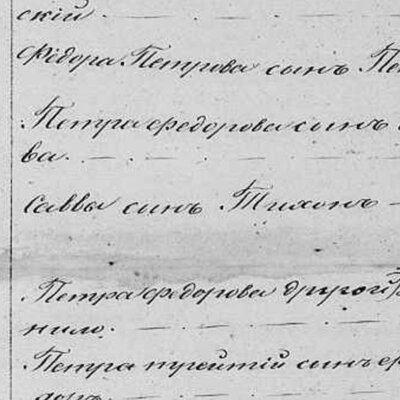 ский
Федора Петрова сынъ Пе
Петра федорова сынъ
ва.
Саввы синъ Тихонъ
Петра федорова другой
нило.
Петра третiй синъ
доръ